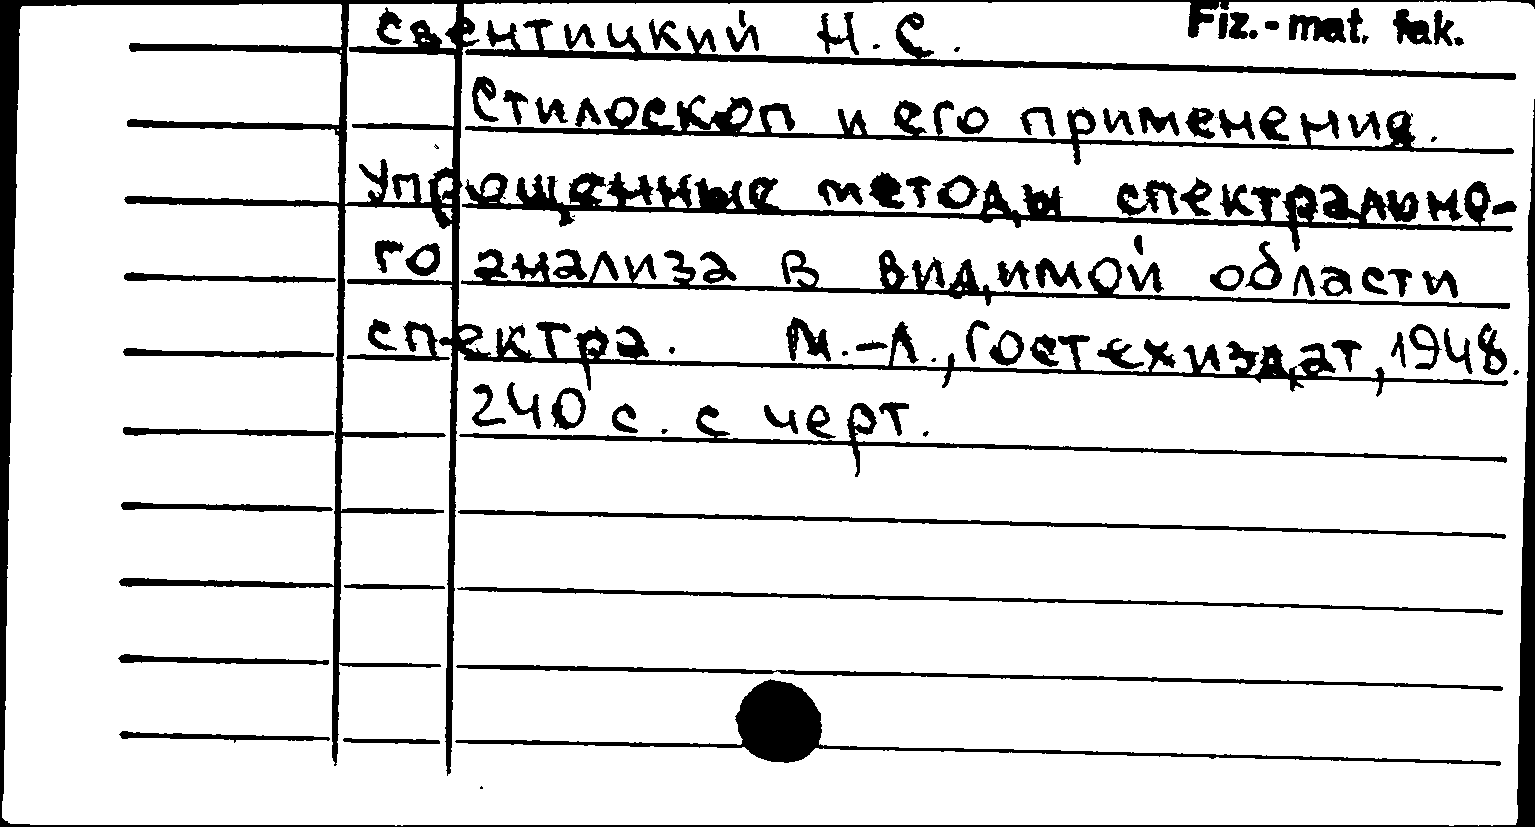 Свентицкий Н.С.
Fiz.-mat. fak.
Стилоскоп и его применения.
Упрощенные методы спектрально-
го анализа в видимой области
спектра. М.-Л., Гостехиздат, 1948.
240 с. с черт.